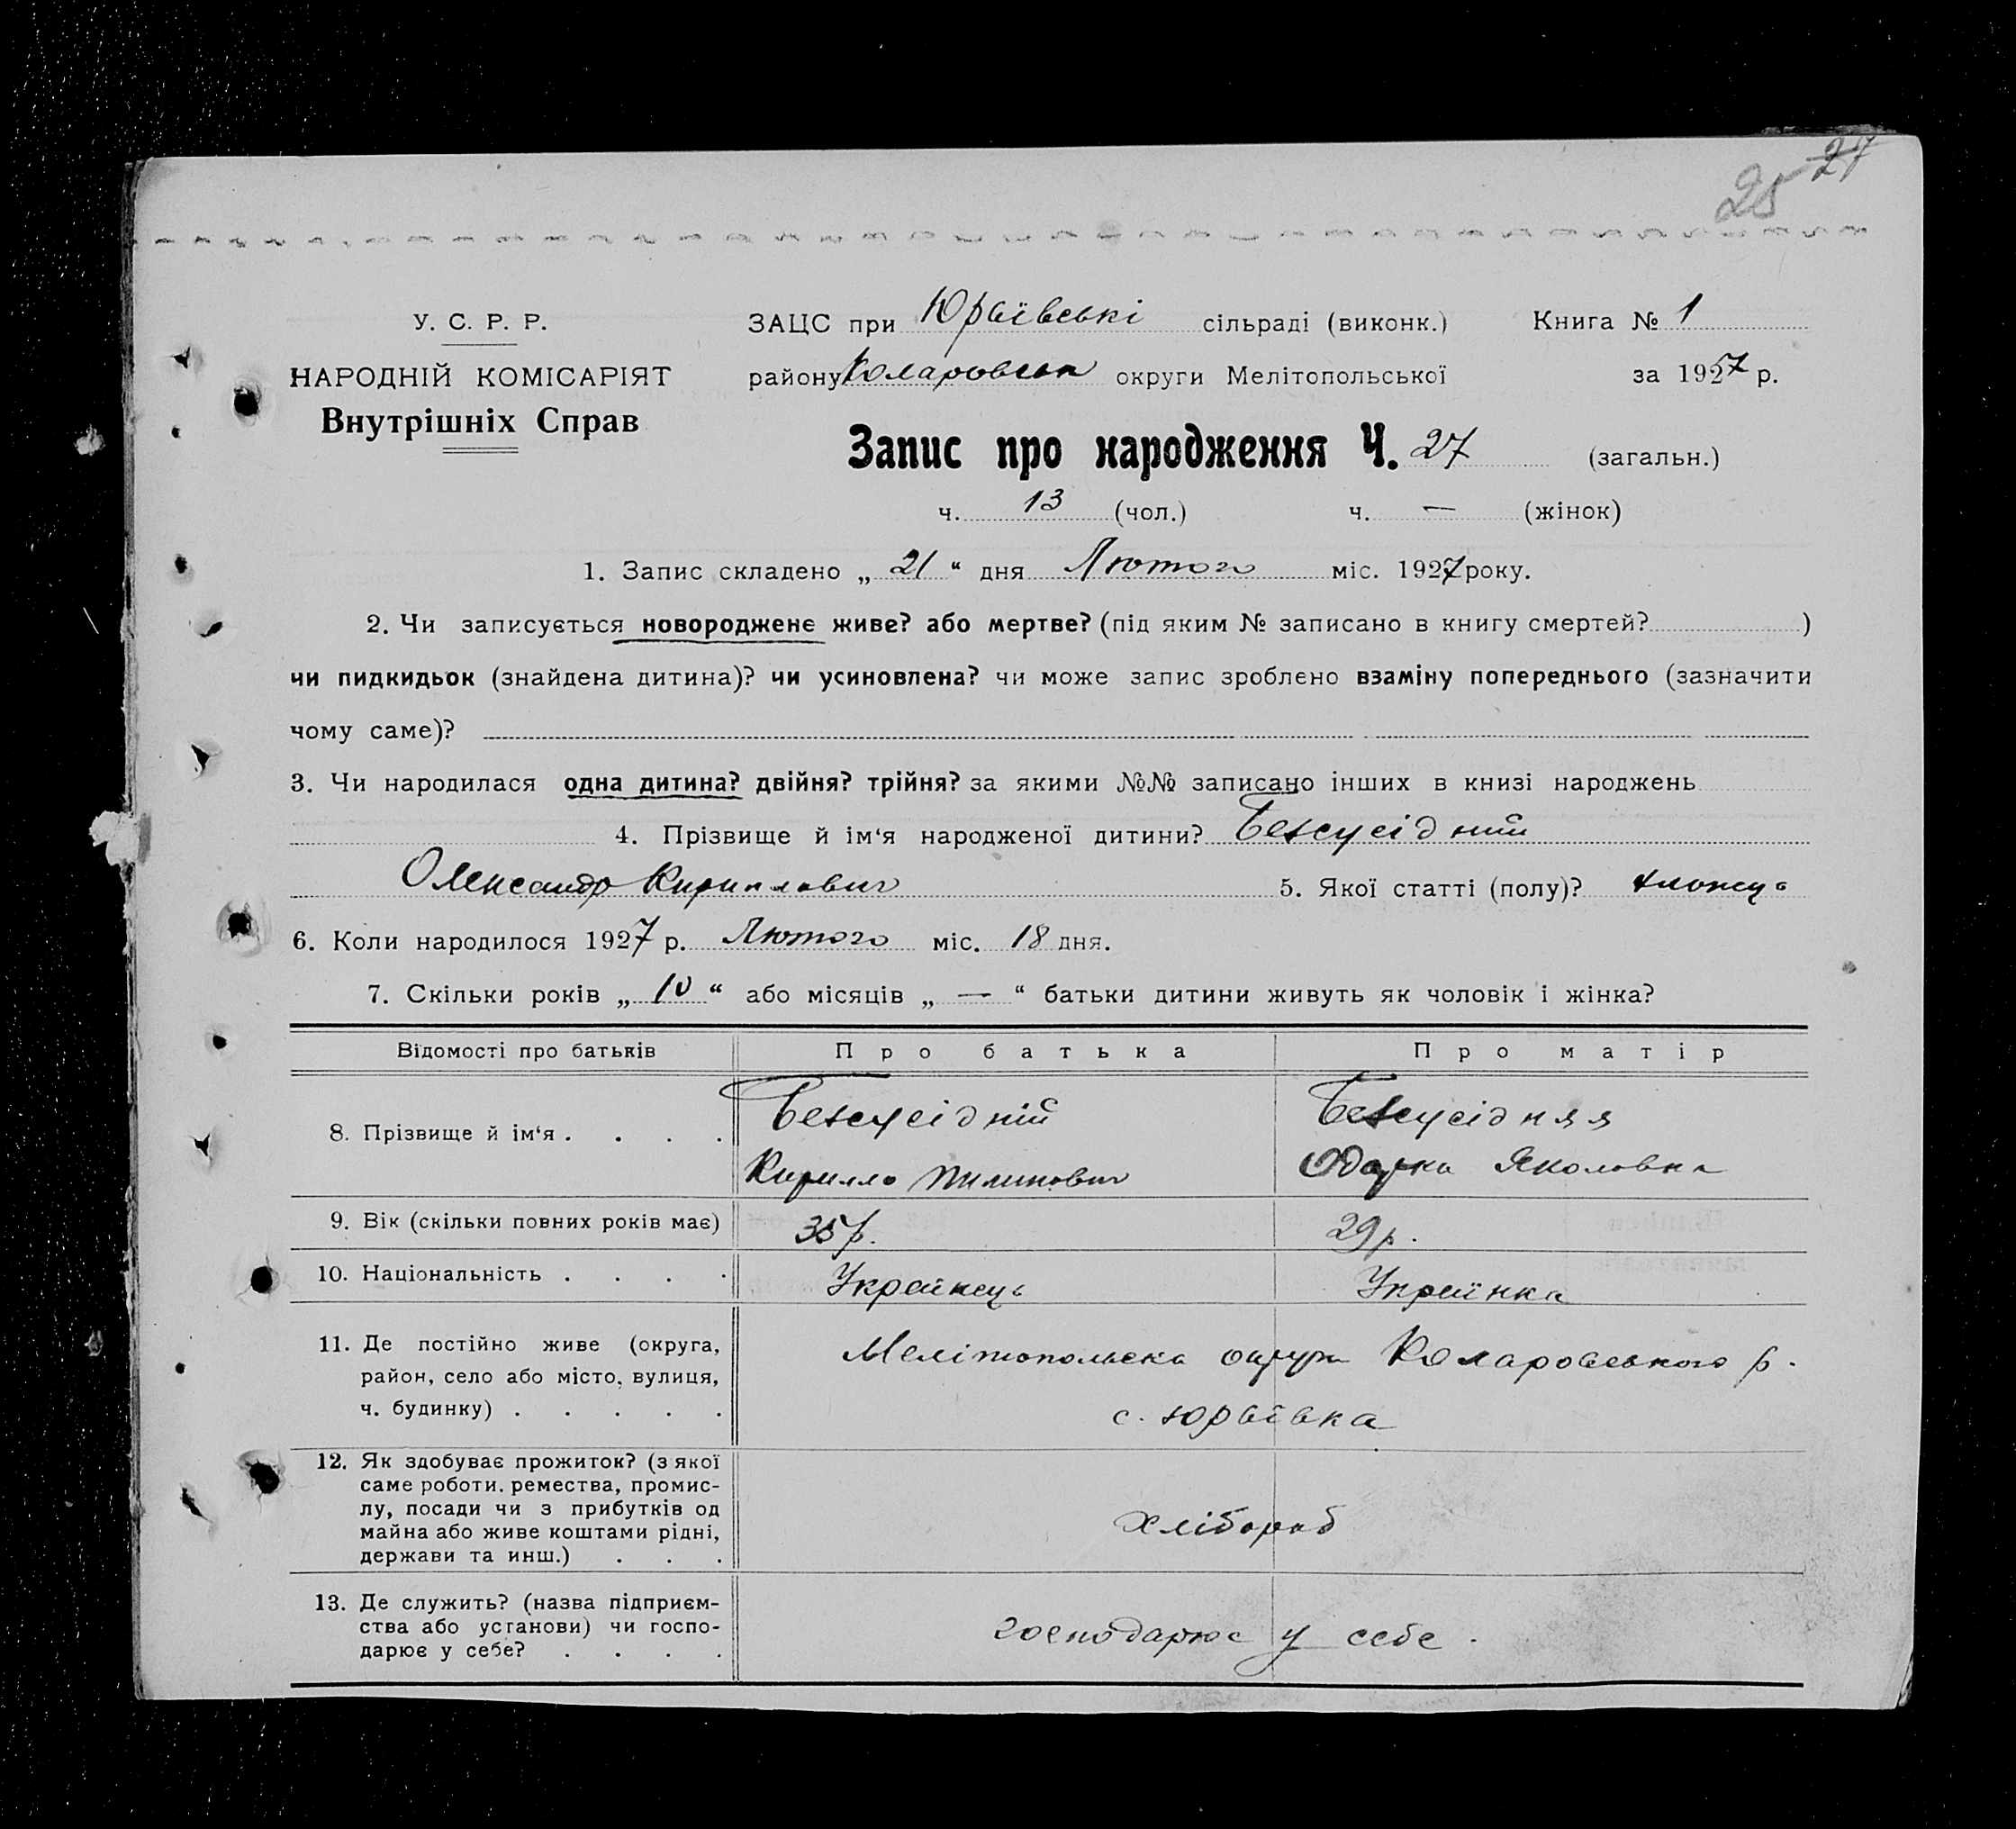 25 27
У. С. Р. Р.
НАРОДНІЙ КОМІСАРІЯТ
Внутрішніх Справ
ЗАЦС при Юрьївські сільраді (виконк.) Книга № 1
району Коларовськ округи Мелітопольської за 1927 р.
Запис про народження Ч. 27 (загальн.)
ч. 13 (чол.) ч. — (жінок)
1. Запис складено „ 21 “ дня Лютого міс. 1927 року.
2. Чи записується новороджене живе? або мертве? (під яким № записано в книгу смертей? )
чи пидкидьок (знайдена дитина)? чи усиновлена? чи може запис зроблено взаміну попереднього (зазначити
чому саме)?
3. Чи народилася одна дитина? двійня? трійня? за якими №№ записано інших в книзі народжень
4. Прізвище й ім‘я народженої дитини? Безсусідний
Олександр Кириллович 5. Якої статті (полу)? хлопець
6. Коли народилося 1927 р. Лютого міс. 18 дня.
7. Скільки років „ 10 “ або місяців „ — “ батьки дитини живуть як чоловік і жінка?
Відомості про батьків Про батька Про матір
8. Прізвище й ім‘я . . . . Безсусідній Безсусідняя
Кирилло Пилипович Одарка Яколовна
9. Вік (скільки повних років має) 35 р. 29 р.
10. Національність . . . . Украінець Украінка
11. Де постійно живе (округа,
район, село або місто, вулиця,
ч. будинку) . . . . .
Мелітопольска округи Коларовського р.
с. Юрьївка
12. Як здобуває прожиток? (з якої
саме роботи. ремества, промис-
лу, посади чи з прибутків од
майна або живе коштами рідні,
держави та инш.) . . .
Хлібороб
13. Де служить? (назва підприєм-
ства або установи) чи госпо-
дарює у себе? . . . .
господарює у себе.